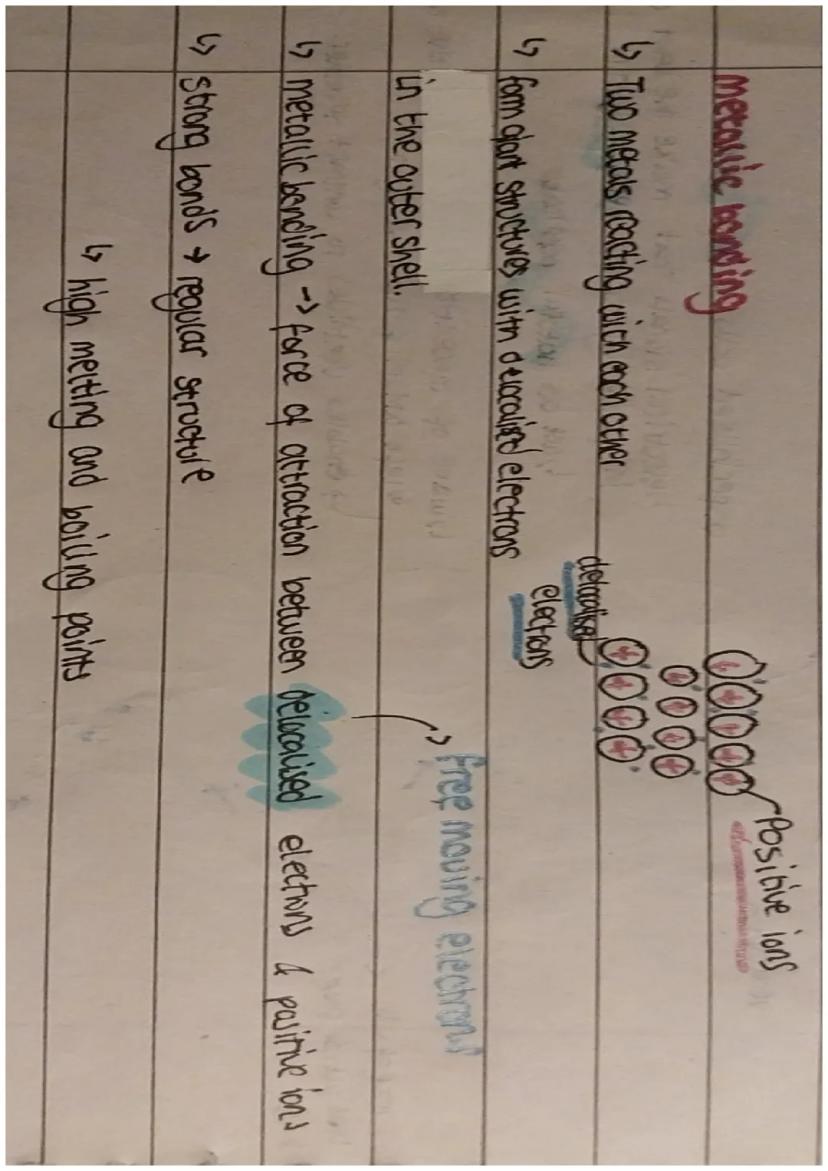 metallic bonding
Positive ions
↳ Two metals reacting with each other
delocalised
electrons
↳ form giant structures with delocalised electrons
in the outer shell.
free moving electrons
↳ metallic bonding → force of attraction between delocalised elections & positive ions
↳ strong bonds → regular structure
↳ high melting and boiling points